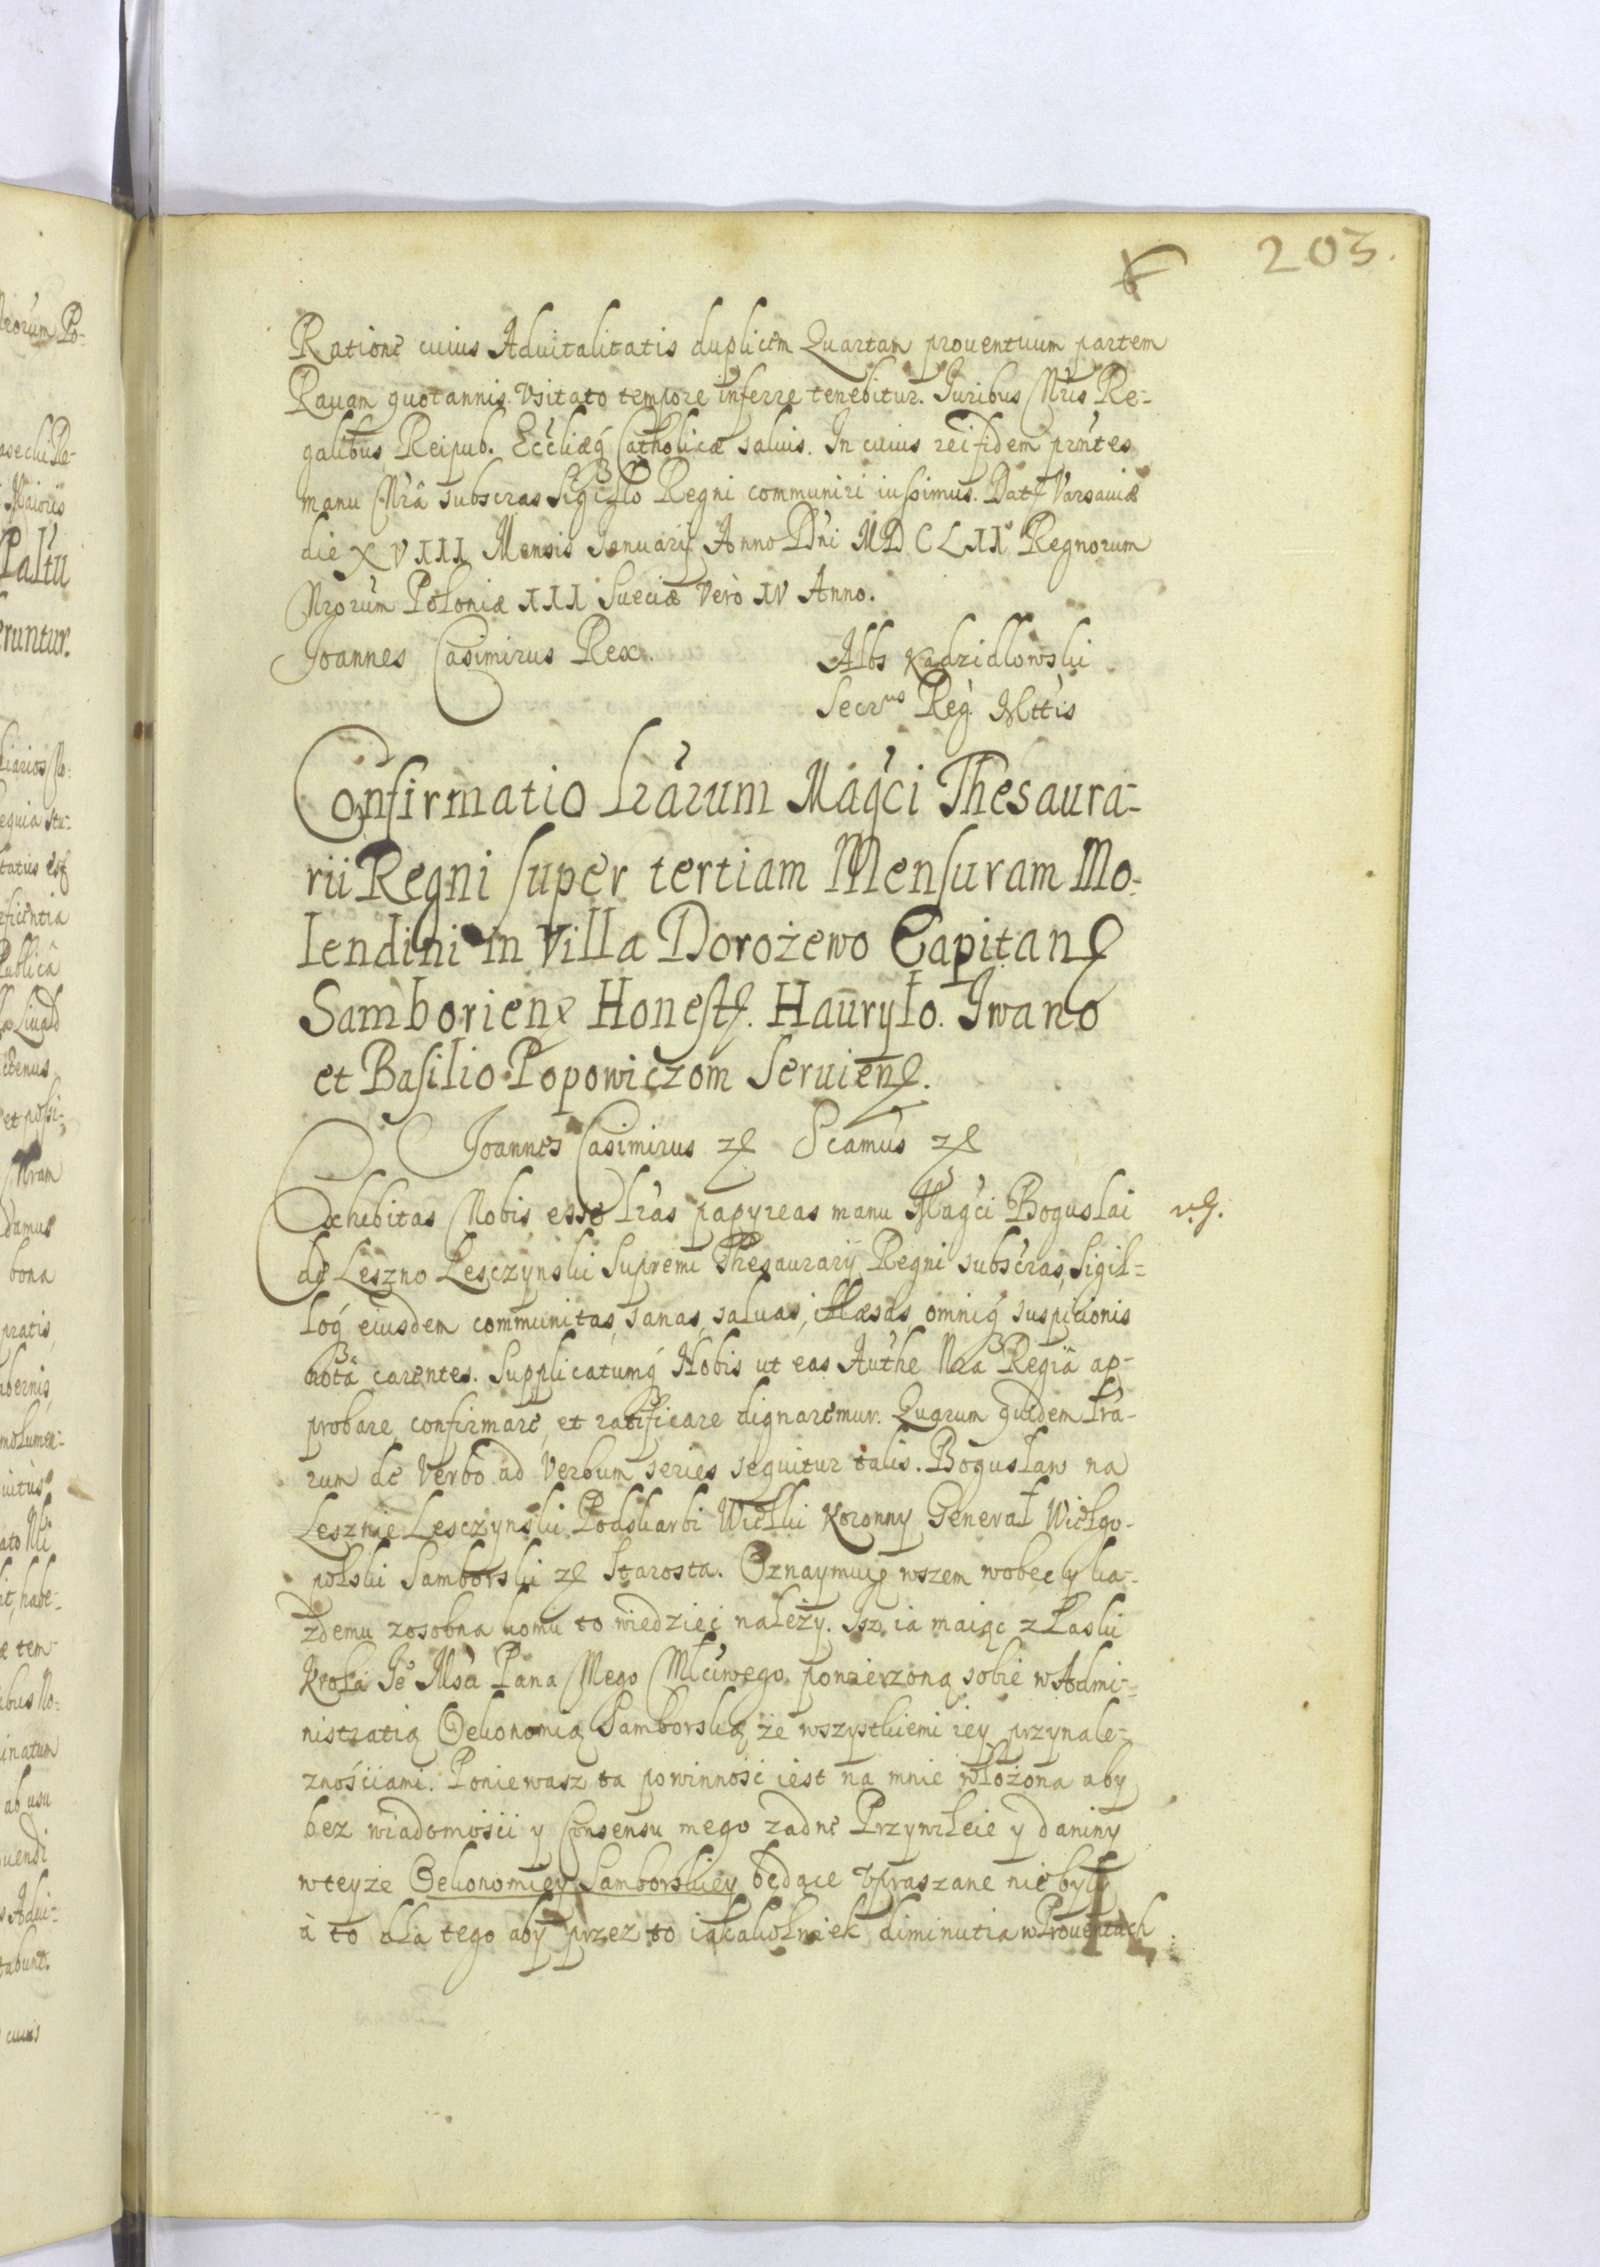 203.
Ratione cuius Aduitalitatis duplicem Quartam prouentuum partem
Rauam quotannis Vsitato tempore inferre tenebitur. Iuribus Nris Re-
galibus Reipub. Eccliæq Catholicæ saluis. In cuius rei fidem prntes
manu Nrâ subscras Sigillo Regni communiri iussimus. Dat Varsauiæ
die XVIII Mensis Ianuarij Anno Dni MDCLII Regnorum
Nrorum Poloniæ III Sueciæ Verò IV Anno.
Joannes Casimirus Rex. Albs Kadzidlowski
Secrus Reg. Mttis
Confirmatio lrarum Magci Thesaura-
rii Regni super tertiam Mensuram Mo-
lendini in Villa Dorożewo Capitan
Samborien Honest. Hauryło. Iwano
et Basilio Popowiczom Seruien.
Joannes Casimirus Scamus
Exhibitas Nobis esse lras papyreas manu Magci Boguslai
de Leszno Lesczynski Supremi Thesaurarij Regni subscras, Sigil-
loq eiusdem communitas, sanas, saluas, illæsas omniq suspicionis
notâ carentes. Supplicatumq Nobis ut eas Authe Nra Regiâ ap-
probare, confirmare, et ratificare dignaremur. Quarum quidem lra-
rum de Verbo ad Verbum series sequitur talis. Bogusław na
Lesznie Lesczynski Podskarbi Wielki Koronny Generał Wielgo-
polski Samborski Starosta. Oznaymuię wszem wobec y ka-
żdemu zosobna komu to wiedzieć należy. Isz ia maiąc z łaski
Krola Je Msci Pana Mego Młciwego powierzoną sobie w Admi-
nistratią Oekonomią Samborską ze wszystkiemi iey przynale-
znościami. Poniewasz ta powinność iest na mnie włożona aby
bez wiadomości y Consensu mego zadne Przywileie y daniny
wteyże Oekonomiey Samborskiey będące Vpraszane nie były
à to dla tego aby przez to iakakolwiek diminutia w Prouentach